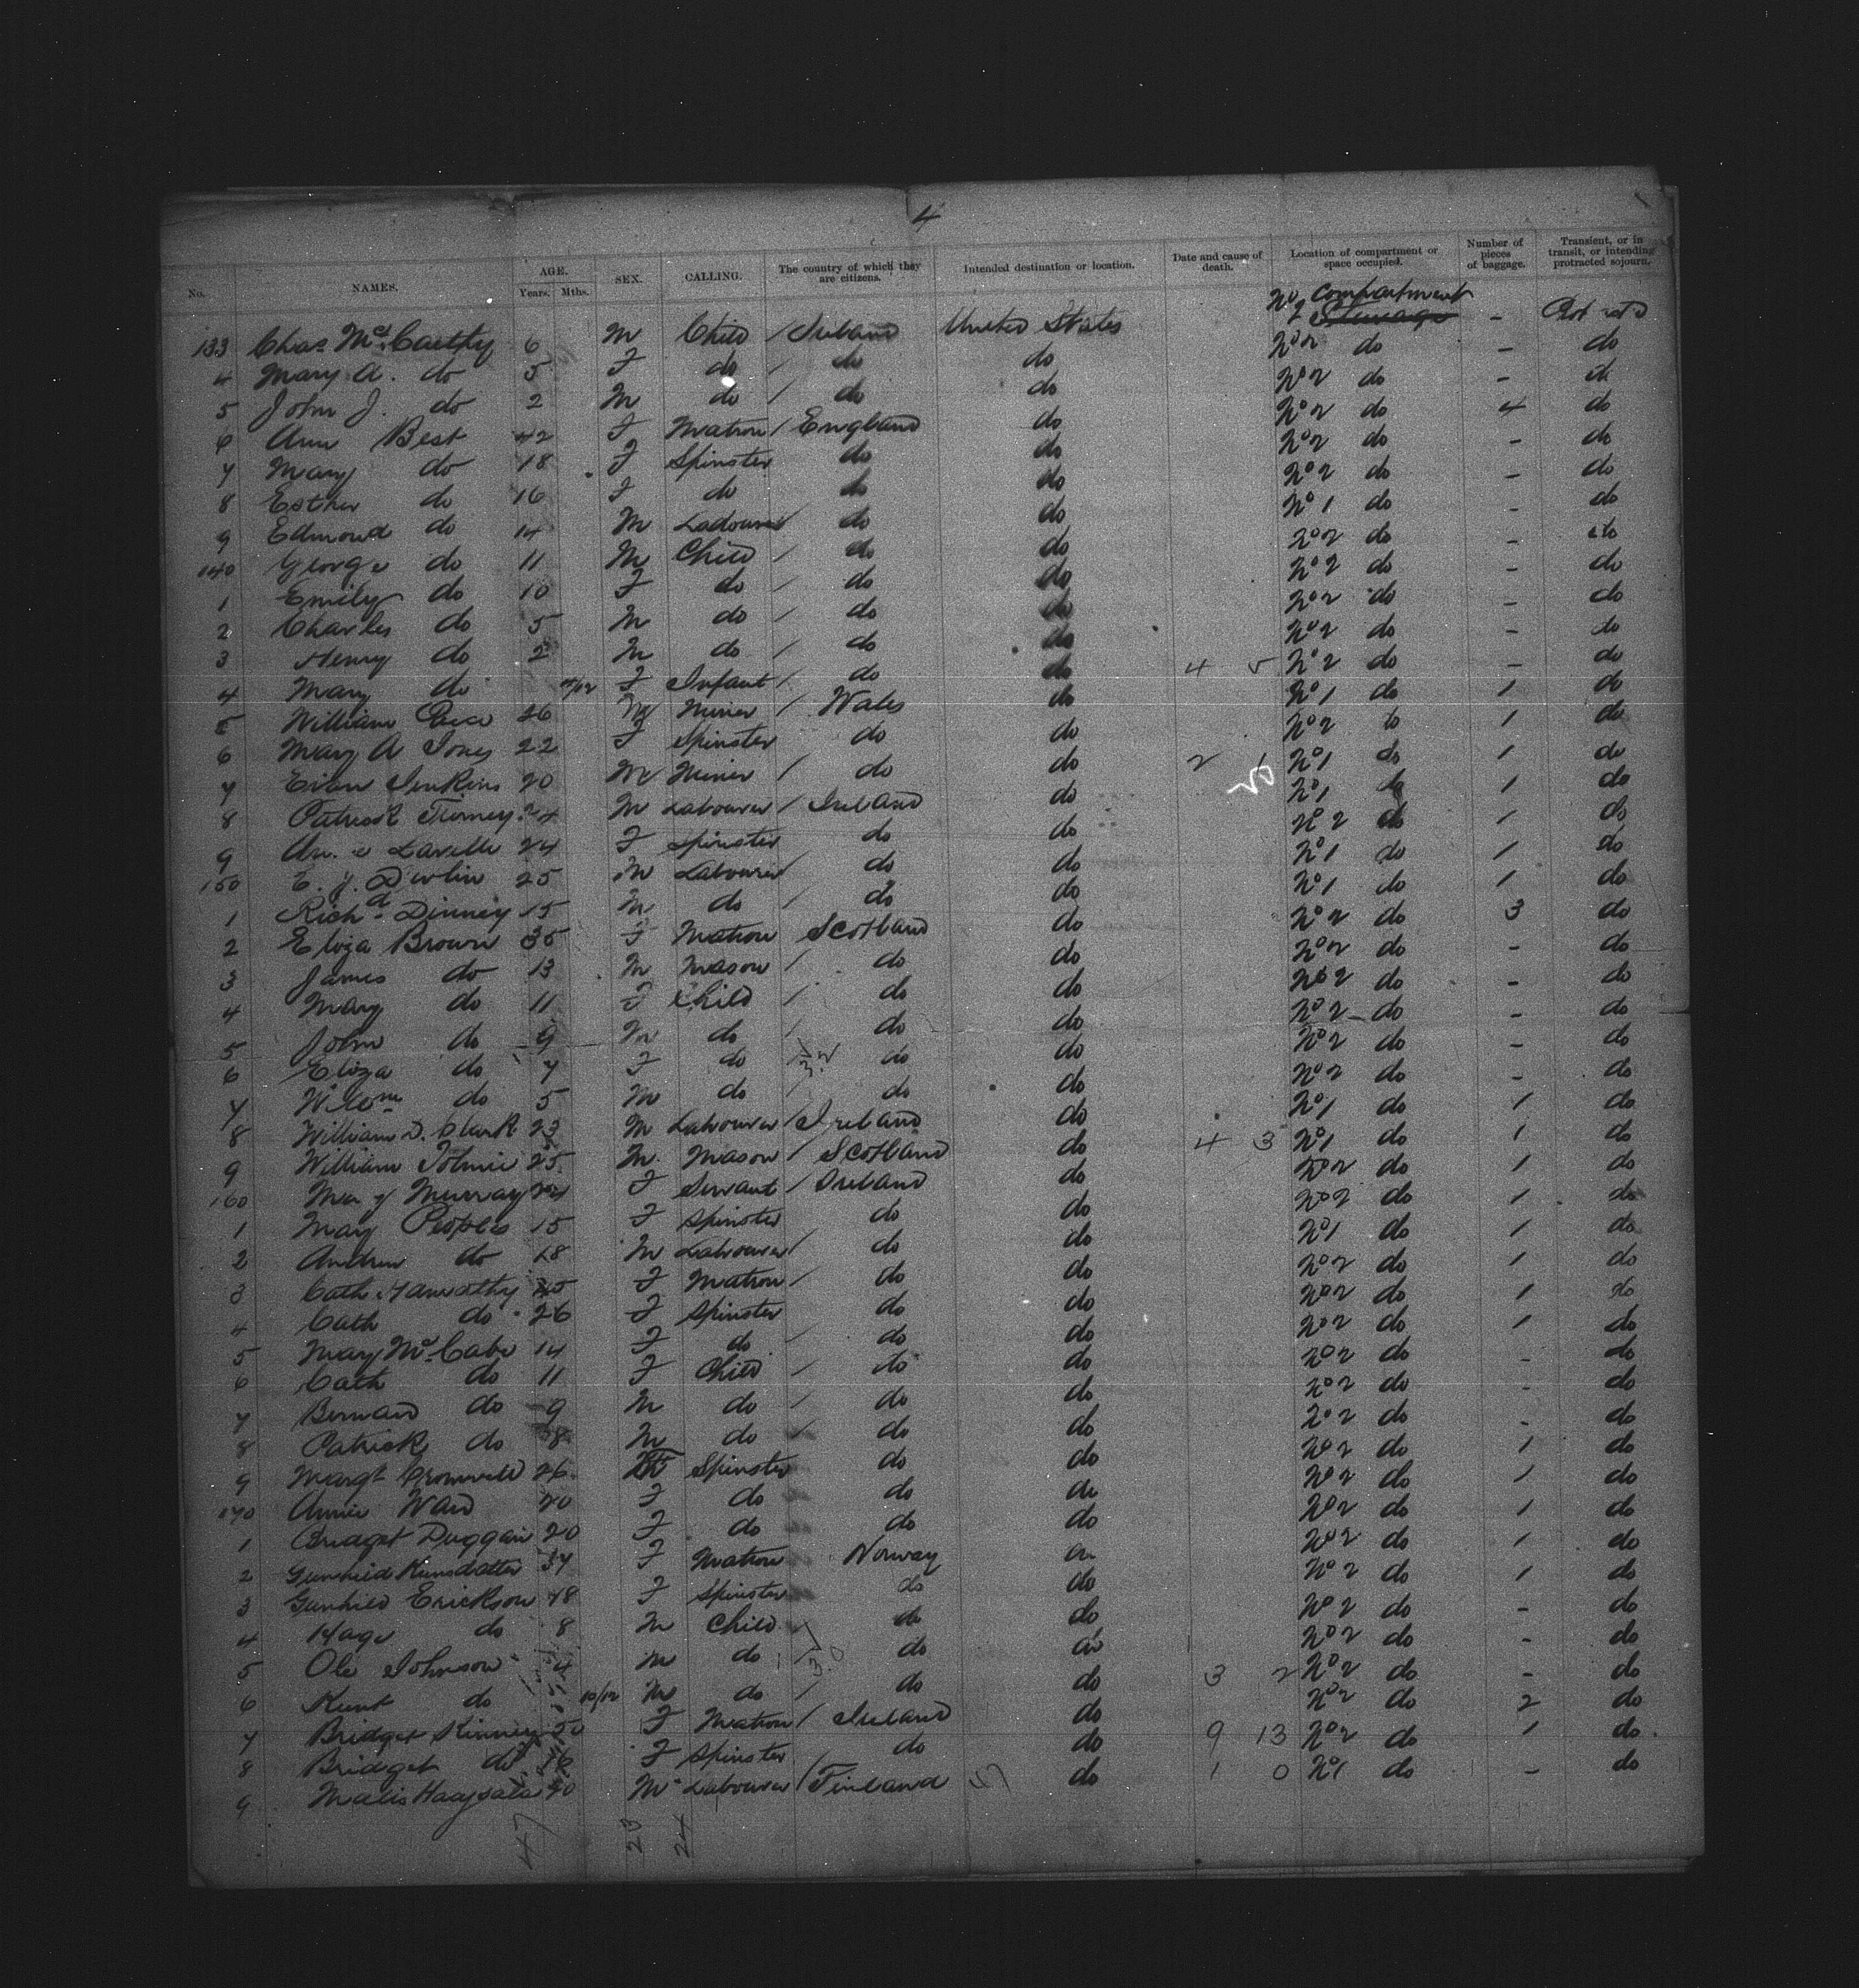 4
No. NAMES. AGE. Years. Mths. SEX. CALLING. The country of which they are citizens. Intended destination or location. Date and cause of death. Location of compartment or space occupied. Number of pieces of baggage. Transient, or in transit, or intending protracted sojourn.
133 Chas Mc Carthy 6 M Child / Ireland United States No 2 Compartment -
4 Mary A. do 5 F do / do do No 2 do - do
5 John J. do 2 M do / do do No 2 do - do
6 Ann Best 42 F Matron / England do No 2 do 4 do
7 Mary do 18 F Spinster do do No 2 do - do
8 Esther do 16 F do do do No 2 do - do
9 Edmond do 14 M Labourer do do No 1 do - do
140 George do 11 M Child / do do No 2 do - do
1 Emily do 10 F do / do do No 2 do - do
2 Charles do 5 M do / do do No 2 do - do
3 Henry do 2 M do / do do No 2 do - do
4 Mary do F Infant / do do 4 5 No 2 do - do
5 William 26 M Miner / Wales do No 1 do 1 do
6 Mary A Jones 22 F Spinster do do No 2 do 1 do
7 Evan Jenkins 20 M Miner / do do 2 1 No 1 do 1 do
8 Patrick Tierney 24 M Labourer / Ireland do No 1 do 1 do
9 Lavelle 24 F Spinster do do No 2 do 1 do
150 Devlin 25 M Labourer do do No 1 do 1 do
1 Richd Dinney 15 M do / do do No 1 do 1 do
2 Eliza Brown 35 F Matron / Scotland do No 2 do 3 do
3 James do 13 M Mason / do do No 2 do - do
4 Mary do 11 F Child / do do No 2 do - do
5 John do 9 M do / do do No 2 do - do
6 Eliza do 7 F do do do No 2 do - do
7 Willm do 5 M do / do do No 2 do - do
8 William D. Clark 23 M Labourer / Ireland do No 1 do 1 do
9 William Tolmie 25 M. Mason / Scotland do 4 3 No 1 do 1 do
160 Mary Murray 24 F Servant / Ireland do No 2 do 1 do
1 Mary Peoples 15 F Spinster do do No 2 do 1 do
2 Andrew do 18 M Labourer / do do No 1 do 1 do
3 Cath 45 F Matron / do do No 2 do 1 do
4 Cath do 26 F Spinster do do No 2 do 1 do
5 Mary Mc Cabe 14 F do / do do No 2 do 1 do
6 Cath do 11 F Child / do do No 2 do - do
7 Bernard do 9 M do / do do No 2 do - do
8 Patrick do 8 M do do do No 2 do - do
9 Margt Cromwell 26 F Spinster do do No 2 do 1 do
170 Annie Ward 20 F do do do No 2 do 1 do
1 Bridget Duggan 20 F do do do No 2 do 1 do
2 Gunhild Knudsdatter 37 F Matron Norway do No 2 do 1 do
3 Gunhild Erickson 18 F Spinster do do No 2 do 1 do
4 Hage do 8 M Child do do No 2 do - do
5 Ole Johnson 4 M do do do No 2 do - do
6 Knut do 10/12 M do / do do 3 2 No 2 do - do
7 Bridget Kinney 50 F Matron / Ireland do No 2 do 2 do
8 Bridget do 16 F Spinster do do 9 13 No 2 do 1 do
9 40 M Labourer / Finland do 1 0 No 1 do - do
47 23 24